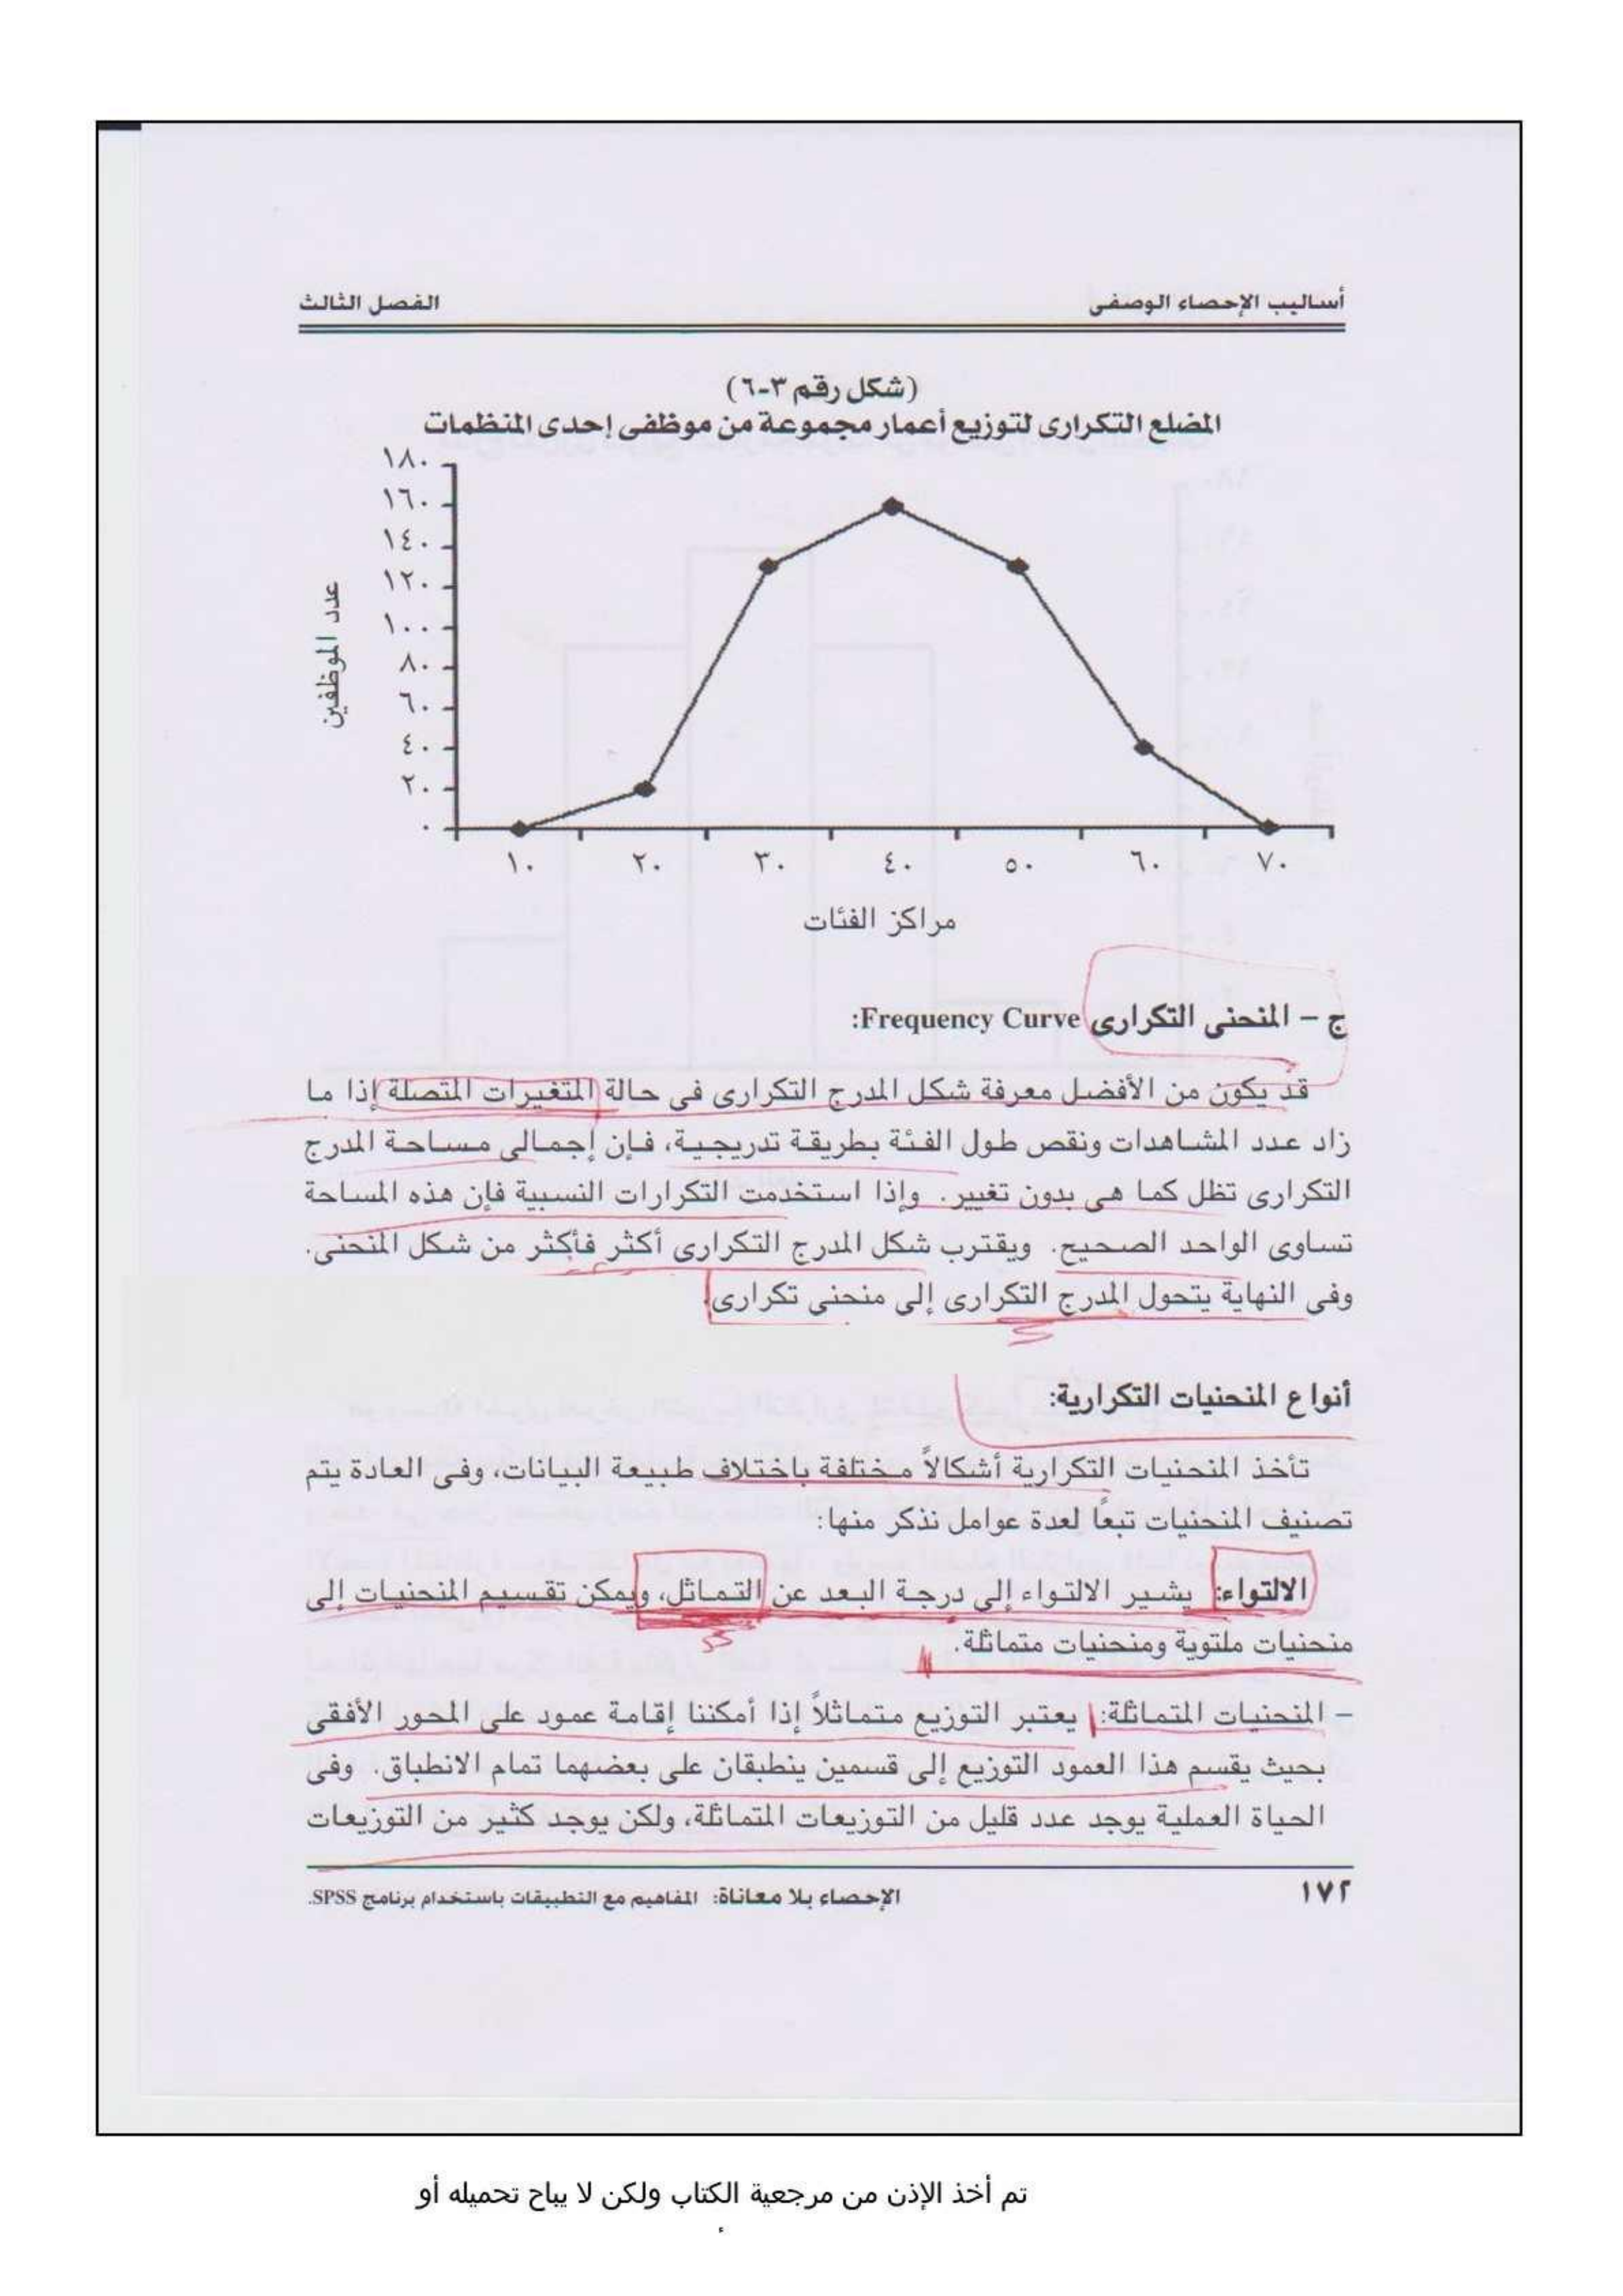 أساليب الإحصاء الوصفى
الفصل الثالث
(شكل رقم ٣-٦)
المضلع التكرارى لتوزيع أعمار مجموعة من موظفى إحدى المنظمات
١٨٠
١٦٠
١٤٠
١٢٠
١٠٠
٨٠
٦٠
٤٠
٢٠
٠
عدد الموظفين
١٠ ٢٠ ٣٠ ٤٠ ٥٠ ٦٠ ٧٠
مراكز الفئات
ج – المنحنى التكرارى Frequency Curve:
قد يكون من الأفضل معرفة شكل المدرج التكرارى فى حالة المتغيرات المتصلة إذا ما
زاد عدد المشاهدات ونقص طول الفئة بطريقة تدريجية، فإن إجمالى مساحة المدرج
التكرارى تظل كما هى بدون تغيير. وإذا استخدمت التكرارات النسبية فإن هذه المساحة
تساوى الواحد الصحيح. ويقترب شكل المدرج التكرارى أكثر فأكثر من شكل المنحنى.
وفى النهاية يتحول المدرج التكرارى إلى منحنى تكرارى.
أنواع المنحنيات التكرارية:
تأخذ المنحنيات التكرارية أشكالاً مختلفة باختلاف طبيعة البيانات، وفى العادة يتم
تصنيف المنحنيات تبعاً لعدة عوامل نذكر منها:
الالتواء: يشير الالتواء إلى درجة البعد عن التماثل، ويمكن تقسيم المنحنيات إلى
منحنيات ملتوية ومنحنيات متماثلة.
– المنحنيات المتماثلة: يعتبر التوزيع متماثلاً إذا أمكننا إقامة عمود على المحور الأفقى
بحيث يقسم هذا العمود التوزيع إلى قسمين ينطبقان على بعضهما تمام الانطباق. وفى
الحياة العملية يوجد عدد قليل من التوزيعات المتماثلة، ولكن يوجد كثير من التوزيعات
١٧٢
الإحصاء بلا معاناة: المفاهيم مع التطبيقات باستخدام برنامج SPSS.
تم أخذ الإذن من مرجعية الكتاب ولكن لا يباح تحميله أو